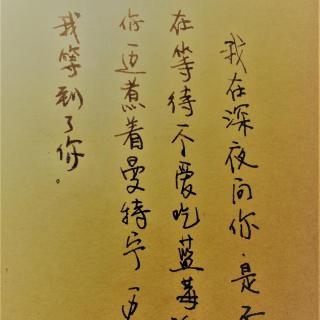 我在深夜问你，是
在等待一个爱吃蓝莓
你边煮着曼特宁 边
我等到了你。